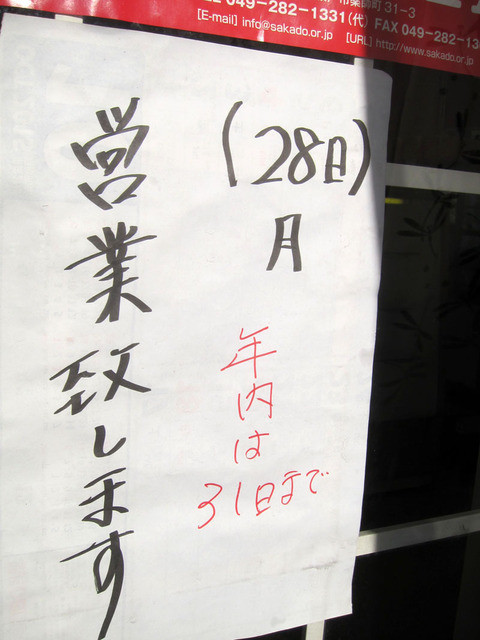 市薬師町31-3
TEL 049-282-1331(代) FAX 049-282-13
[E-mail] info@sakado.or.jp [URL] http://www.sakado.or.jp
(28日)
月
年内は
31日まで
営業致します